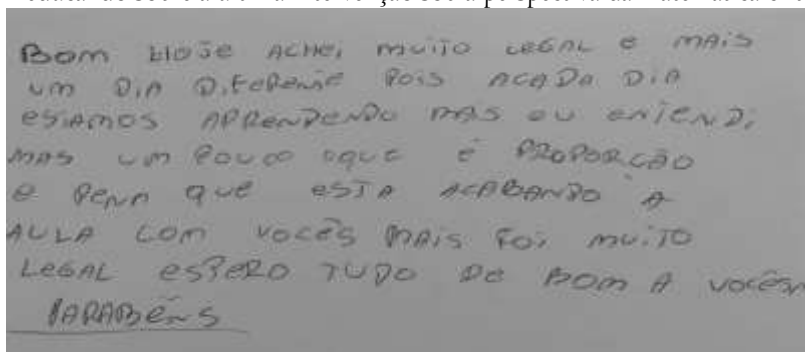 Bom Hoje ACHei muito LeGAL e mais
um DiA DiFeRente Pois ACADA DiA
estAmos APRenDenDo mAs eu entenDi
mAs um Pouco oque é PROPORÇÃO
e PenA que estA ACABANDO A
AULA com vocês mAis Foi muito
LeGAL esPeRo TUDO De Bom A vocês
PARABÉNS